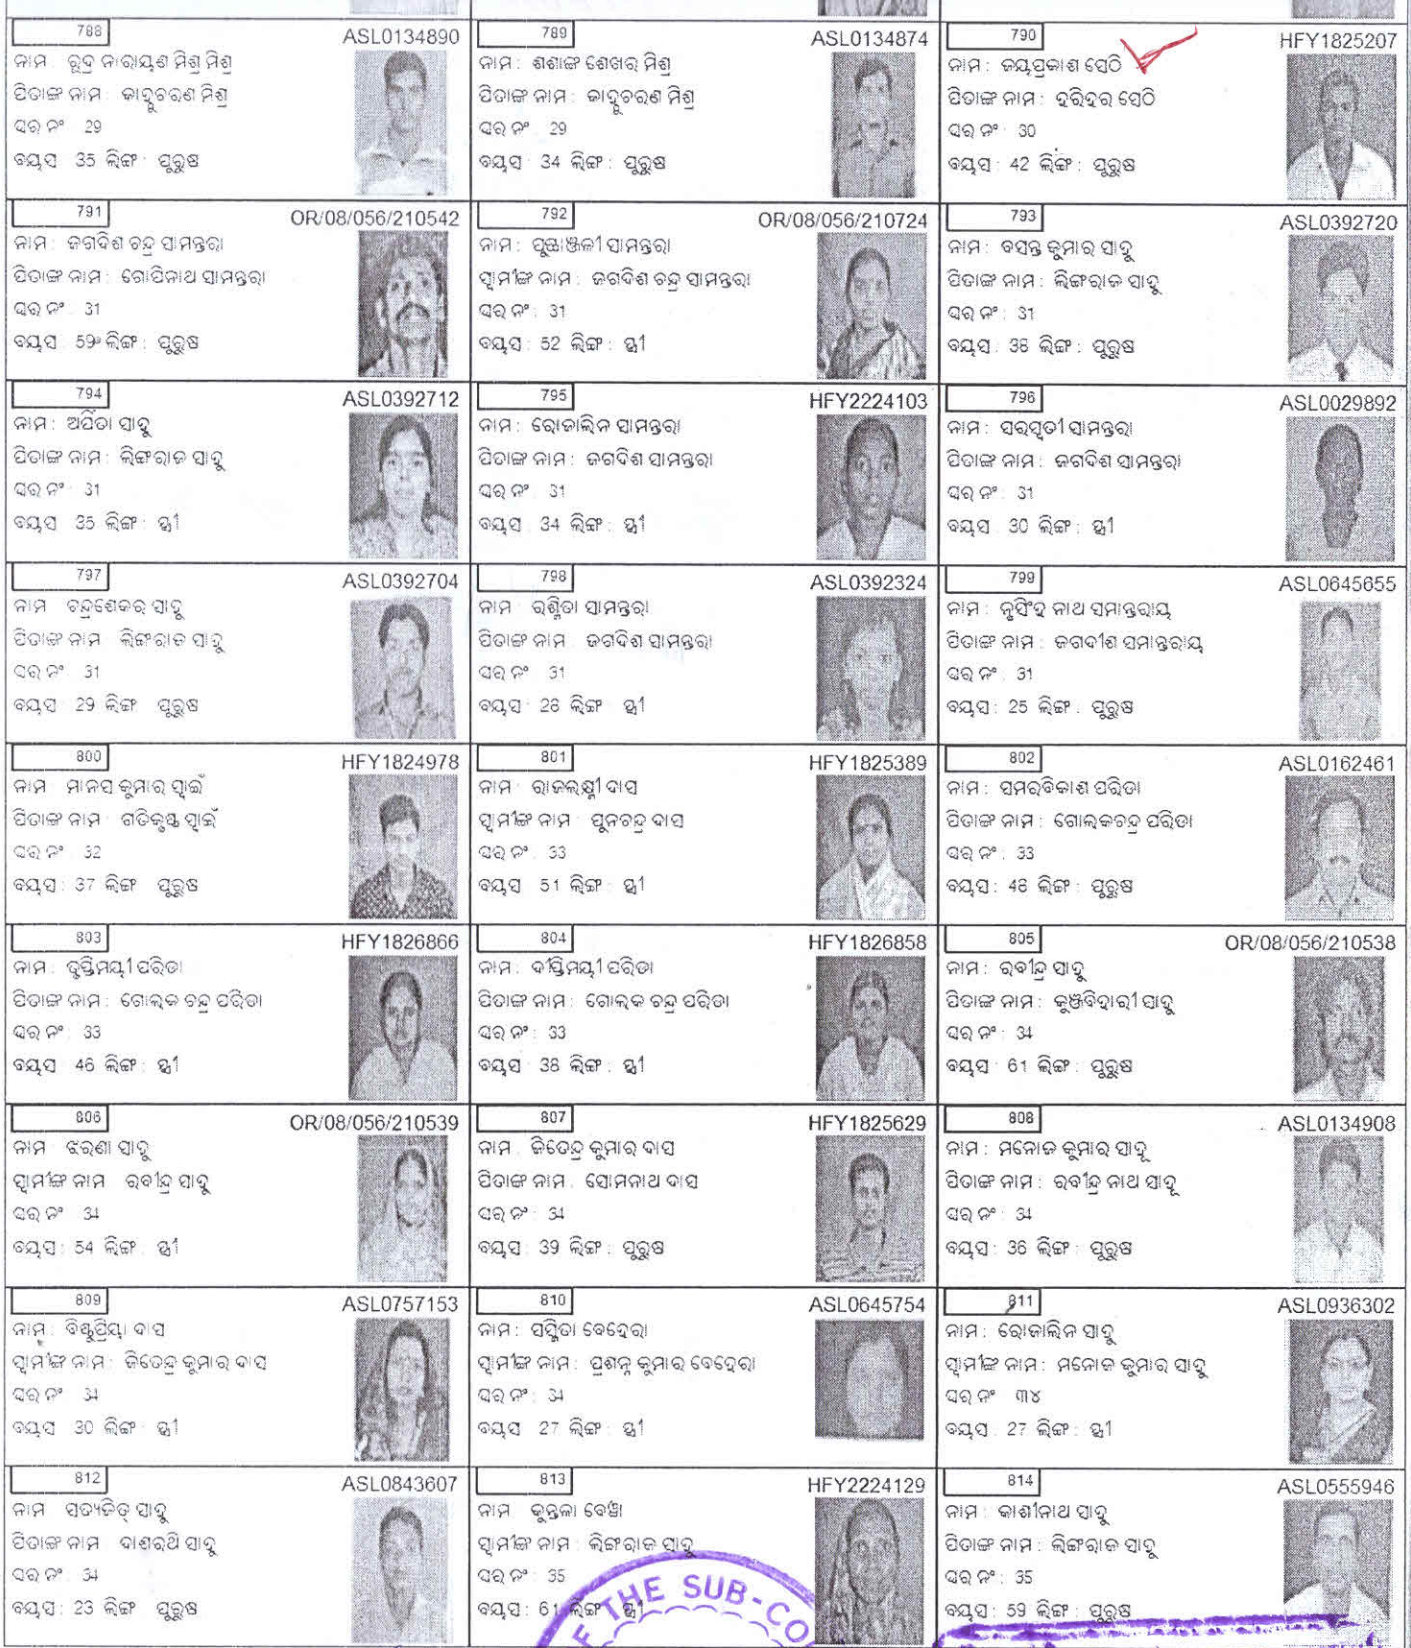 788 ASL0134890
ନାମ : ରୂଦ୍ର ନାରାୟଣ ମିଶ୍ର ମିଶ୍ର
ପିତାଙ୍କ ନାମ : କାହ୍ନୁଚରଣ ମିଶ୍ର
ଘର ନଂ : 29
ବୟସ : 35 ଲିଙ୍ଗ : ପୁରୁଷ
789 ASL0134874
ନାମ : ଶଶାଙ୍କ ଶେଖର ମିଶ୍ର
ପିତାଙ୍କ ନାମ : କାହ୍ନୁଚରଣ ମିଶ୍ର
ଘର ନଂ : 29
ବୟସ : 34 ଲିଙ୍ଗ : ପୁରୁଷ
790 HFY1825207
ନାମ : ଜୟପ୍ରକାଶ ସେଠି
ପିତାଙ୍କ ନାମ : ହରିହର ସେଠି
ଘର ନଂ : 30
ବୟସ : 42 ଲିଙ୍ଗ : ପୁରୁଷ
791 OR/08/056/210542
ନାମ : ଜଗଦିଶ ଚନ୍ଦ୍ର ସାମନ୍ତରା
ପିତାଙ୍କ ନାମ : ଗୋପିନାଥ ସାମନ୍ତରା
ଘର ନଂ : 31
ବୟସ : 59 ଲିଙ୍ଗ : ପୁରୁଷ
792 OR/08/056/210724
ନାମ : ପୁଷ୍ପାଞ୍ଜଳୀ ସାମନ୍ତରା
ସ୍ୱାମୀଙ୍କ ନାମ : ଜଗଦିଶ ଚନ୍ଦ୍ର ସାମନ୍ତରା
ଘର ନଂ : 31
ବୟସ : 52 ଲିଙ୍ଗ : ସ୍ତ୍ରୀ
793 ASL0392720
ନାମ : ବସନ୍ତ କୁମାର ସାହୁ
ପିତାଙ୍କ ନାମ : ଲିଙ୍ଗରାଜ ସାହୁ
ଘର ନଂ : 31
ବୟସ : 38 ଲିଙ୍ଗ : ପୁରୁଷ
794 ASL0392712
ନାମ : ଅର୍ପିତା ସାହୁ
ପିତାଙ୍କ ନାମ : ଲିଙ୍ଗରାଜ ସାହୁ
ଘର ନଂ : 31
ବୟସ : 35 ଲିଙ୍ଗ : ସ୍ତ୍ରୀ
795 HFY2224103
ନାମ : ରୋଜାଲିନ ସାମନ୍ତରା
ପିତାଙ୍କ ନାମ : ଜଗଦିଶ ସାମନ୍ତରା
ଘର ନଂ : 31
ବୟସ : 34 ଲିଙ୍ଗ : ସ୍ତ୍ରୀ
796 ASL0029892
ନାମ : ସରସ୍ୱତୀ ସାମନ୍ତରା
ପିତାଙ୍କ ନାମ : ଜଗଦିଶ ସାମନ୍ତରା
ଘର ନଂ : 31
ବୟସ : 30 ଲିଙ୍ଗ : ସ୍ତ୍ରୀ
797 ASL0392704
ନାମ : ଚନ୍ଦ୍ରଶେକର ସାହୁ
ପିତାଙ୍କ ନାମ : ଲିଙ୍ଗରାଜ ସାହୁ
ଘର ନଂ : 31
ବୟସ : 29 ଲିଙ୍ଗ : ପୁରୁଷ
798 ASL0392324
ନାମ : ରଶ୍ମିତା ସାମନ୍ତରା
ପିତାଙ୍କ ନାମ : ଜଗଦିଶ ସାମନ୍ତରା
ଘର ନଂ : 31
ବୟସ : 28 ଲିଙ୍ଗ : ସ୍ତ୍ରୀ
799 ASL0645655
ନାମ : ନୃସିଂହ ନାଥ ସମାନ୍ତରାୟ
ପିତାଙ୍କ ନାମ : ଜଗଦୀଶ ସମାନ୍ତରାୟ
ଘର ନଂ : 31
ବୟସ : 25 ଲିଙ୍ଗ : ପୁରୁଷ
800 HFY1824978
ନାମ : ମାନସ କୁମାର ସ୍ୱାଇଁ
ପିତାଙ୍କ ନାମ : ଗତିକୃଷ୍ଣ ସ୍ୱାଇଁ
ଘର ନଂ : 32
ବୟସ : 37 ଲିଙ୍ଗ : ପୁରୁଷ
801 HFY1825389
ନାମ : ରାଜଲକ୍ଷ୍ମୀ ଦାସ
ସ୍ୱାମୀଙ୍କ ନାମ : ପୁନଚନ୍ଦ୍ର ଦାସ
ଘର ନଂ : 33
ବୟସ : 51 ଲିଙ୍ଗ : ସ୍ତ୍ରୀ
802 ASL0162461
ନାମ : ସମରବିକାଶ ପରିଡା
ପିତାଙ୍କ ନାମ : ଗୋଲକଚନ୍ଦ୍ର ପରିଡା
ଘର ନଂ : 33
ବୟସ : 48 ଲିଙ୍ଗ : ପୁରୁଷ
803 HFY1826866
ନାମ : ତୃପ୍ତିମୟୀ ପରିଡା
ପିତାଙ୍କ ନାମ : ଗୋଲକ ଚନ୍ଦ୍ର ପରିଡା
ଘର ନଂ : 33
ବୟସ : 46 ଲିଙ୍ଗ : ସ୍ତ୍ରୀ
804 HFY1826858
ନାମ : ଦୀପ୍ତିମୟୀ ପରିଡା
ପିତାଙ୍କ ନାମ : ଗୋଲକ ଚନ୍ଦ୍ର ପରିଡା
ଘର ନଂ : 33
ବୟସ : 38 ଲିଙ୍ଗ : ସ୍ତ୍ରୀ
805 OR/08/056/210538
ନାମ : ରବୀନ୍ଦ୍ର ସାହୁ
ପିତାଙ୍କ ନାମ : କୁଞ୍ଜବିହାରୀ ସାହୁ
ଘର ନଂ : 34
ବୟସ : 61 ଲିଙ୍ଗ : ପୁରୁଷ
806 OR/08/056/210539
ନାମ : ଝରଣା ସାହୁ
ସ୍ୱାମୀଙ୍କ ନାମ : ରବୀନ୍ଦ୍ର ସାହୁ
ଘର ନଂ : 34
ବୟସ : 54 ଲିଙ୍ଗ : ସ୍ତ୍ରୀ
807 HFY1825629
ନାମ : ଜିତେନ୍ଦ୍ର କୁମାର ଦାସ
ପିତାଙ୍କ ନାମ : ସୋମନାଥ ଦାସ
ଘର ନଂ : 34
ବୟସ : 39 ଲିଙ୍ଗ : ପୁରୁଷ
808 ASL0134908
ନାମ : ମନୋଜ କୁମାର ସାହୁ
ପିତାଙ୍କ ନାମ : ରବୀନ୍ଦ୍ର ନାଥ ସାହୁ
ଘର ନଂ : 34
ବୟସ : 36 ଲିଙ୍ଗ : ପୁରୁଷ
809 ASL0757153
ନାମ : ବିଷ୍ଣୁପ୍ରିୟା ଦାସ
ସ୍ୱାମୀଙ୍କ ନାମ : ଜିତେନ୍ଦ୍ର କୁମାର ଦାସ
ଘର ନଂ : 34
ବୟସ : 30 ଲିଙ୍ଗ : ସ୍ତ୍ରୀ
810 ASL0645754
ନାମ : ସସ୍ମିତା ବେହେରା
ସ୍ୱାମୀଙ୍କ ନାମ : ପ୍ରଶନ୍ନ କୁମାର ବେହେରା
ଘର ନଂ : 34
ବୟସ : 27 ଲିଙ୍ଗ : ସ୍ତ୍ରୀ
811 ASL0936302
ନାମ : ରୋଜାଲିନ ସାହୁ
ସ୍ୱାମୀଙ୍କ ନାମ : ମନୋଜ କୁମାର ସାହୁ
ଘର ନଂ : ୩୪
ବୟସ : 27 ଲିଙ୍ଗ : ସ୍ତ୍ରୀ
812 ASL0843607
ନାମ : ସତ୍ୟଜିତ୍ ସାହୁ
ପିତାଙ୍କ ନାମ : ଦାଶରଥି ସାହୁ
ଘର ନଂ : 34
ବୟସ : 23 ଲିଙ୍ଗ : ପୁରୁଷ
813 HFY2224129
ନାମ : କୁନ୍ତଳା ବେୱା
ସ୍ୱାମୀଙ୍କ ନାମ : ଲିଙ୍ଗରାଜ ସାହୁ
ଘର ନଂ : 35
ବୟସ : 61 ଲିଙ୍ଗ : ସ୍ତ୍ରୀ
814 ASL0555946
ନାମ : କାଶୀନାଥ ସାହୁ
ପିତାଙ୍କ ନାମ : ଲିଙ୍ଗରାଜ ସାହୁ
ଘର ନଂ : 35
ବୟସ : 59 ଲିଙ୍ଗ : ପୁରୁଷ
THE SUB-CO